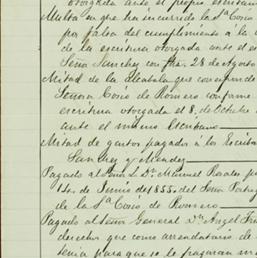 otorgada ante el propio
Multa en que ha incurrido la Sra Cosio
por falta del cumplimiento á la
de la escritura otorgada ante el
Señor Sanchez con fha. 28 de Agosto
Mitad de la Alcabala que
Señora Cosio de Romero
escritura otorgada el 8. de Octubre
ante el mismo Escribano
Mitad de gastos pagados á los
Sanchez y Mendez
Pagado al Señor L. Dn. Manuel Rosales
de Junio del 855. del Señor
de la Sra Cosio de Romero
Pagado al Señor General Dn. Angel
derechos que como arrendatario de
tenia para que se le pagaran